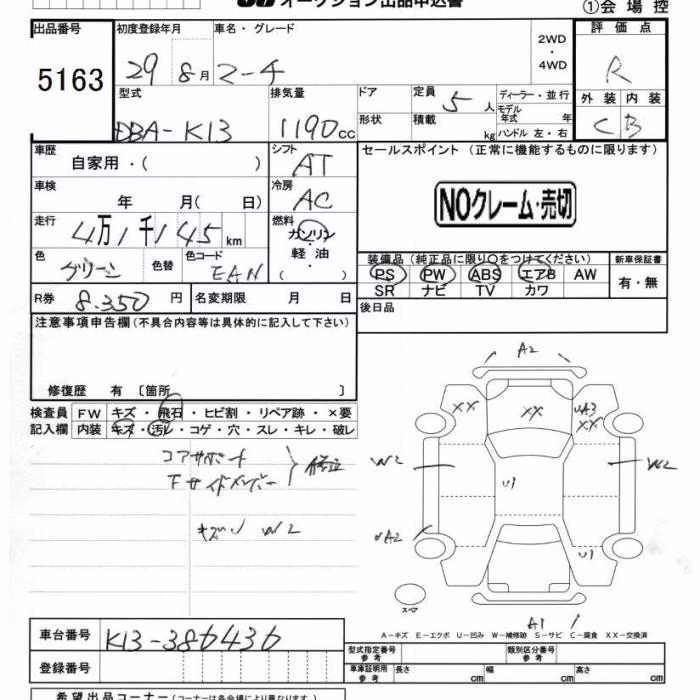 オークション出品申込書
①会場控
出品番号 初度登録年月 車名・グレード 2WD・4WD 評価点
5163 29 8月 マーチ R
型式 排気量 ドア 定員 5人 ディーラー・並行 外装 内装
DBA-K13 1190cc 形状 積載 kg モデル年式 年 ハンドル 左・右 C B
車歴 自家用・( ) シフト AT セールスポイント (正常に機能するものに限ります)
車検 年 月( 日) 冷房 AC NOクレーム・売切
走行 4万1千145km 燃料 ガソリン・軽油・( )
色 グリーン 色替 色コード EAN 装備品(純正品に限り○をつけてください) 新車保証書
PS PW ABS エアB AW 有・無
R券 8.350円 名変期限 月 日 SR ナビ TV カワ
注意事項申告欄(不具合内容等は具体的に記入して下さい) 後日品
修復歴 有 [箇所 ]
検査員記入欄 FW キズ・飛石・ヒビ割・リペア跡・×要
内装 キズ・汚レ・コゲ・穴・スレ・キレ・破レ
コアサポート
Fサイドメンバー 修正
W2
A2
XX XX UA3 XX
W2 U1 W2
UA2 U1
スペア
A1
A-キズ E-エクボ U-凹み W-補修跡 S-サビ C-腐食 XX-交換済
車台番号 K13-386436 型式指定番号 参考 類別区分番号 参考
登録番号 車庫証明用 参考 長さ cm 幅 cm 高さ cm
希望出品コーナー(コーナーは各会場により異なります)